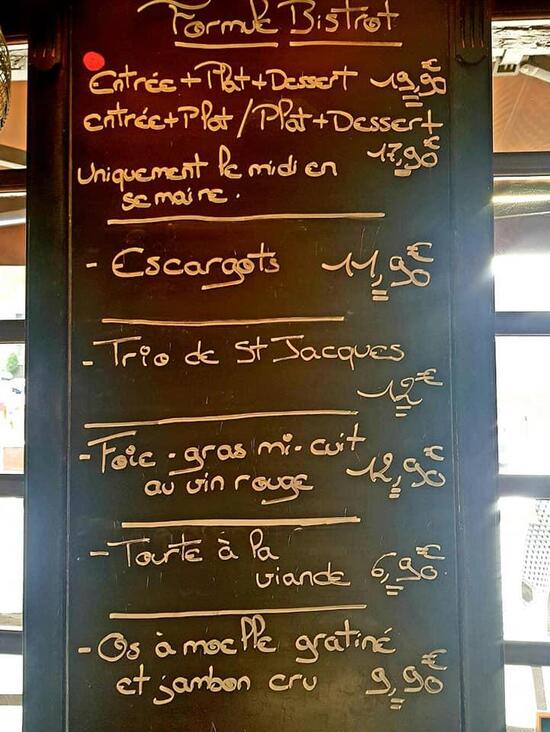 Formule Bistrot
Entrée + Plat + Dessert 19,90€
entrée + Plat / Plat + Dessert
17,90€
Uniquement le midi en
semaine.
- Escargots 11,90€
- Trio de St Jacques
12€
- Foie - gras mi - cuit
au vin rouge 12,90€
- Tourte à la
viande 6,90€
- Os à moelle gratiné
et jambon cru 9,90€